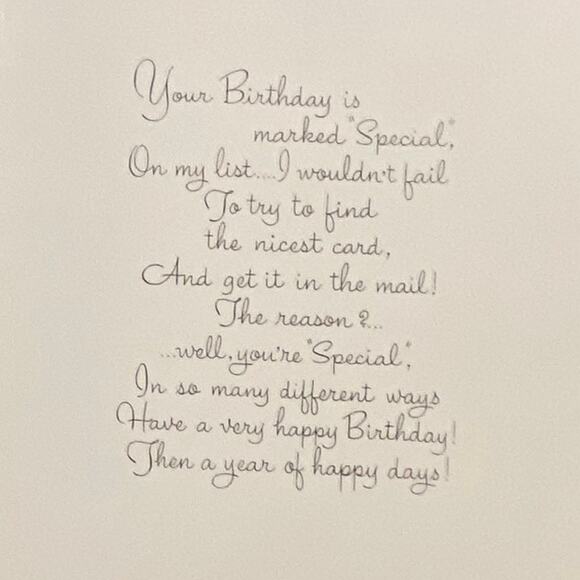 Your Birthday is
marked "Special",
On my list....I wouldn't fail
To try to find
the nicest card,
And get it in the mail!
The reason?...
...well, you're "Special",
In so many different ways
Have a very happy Birthday!
Then a year of happy days!